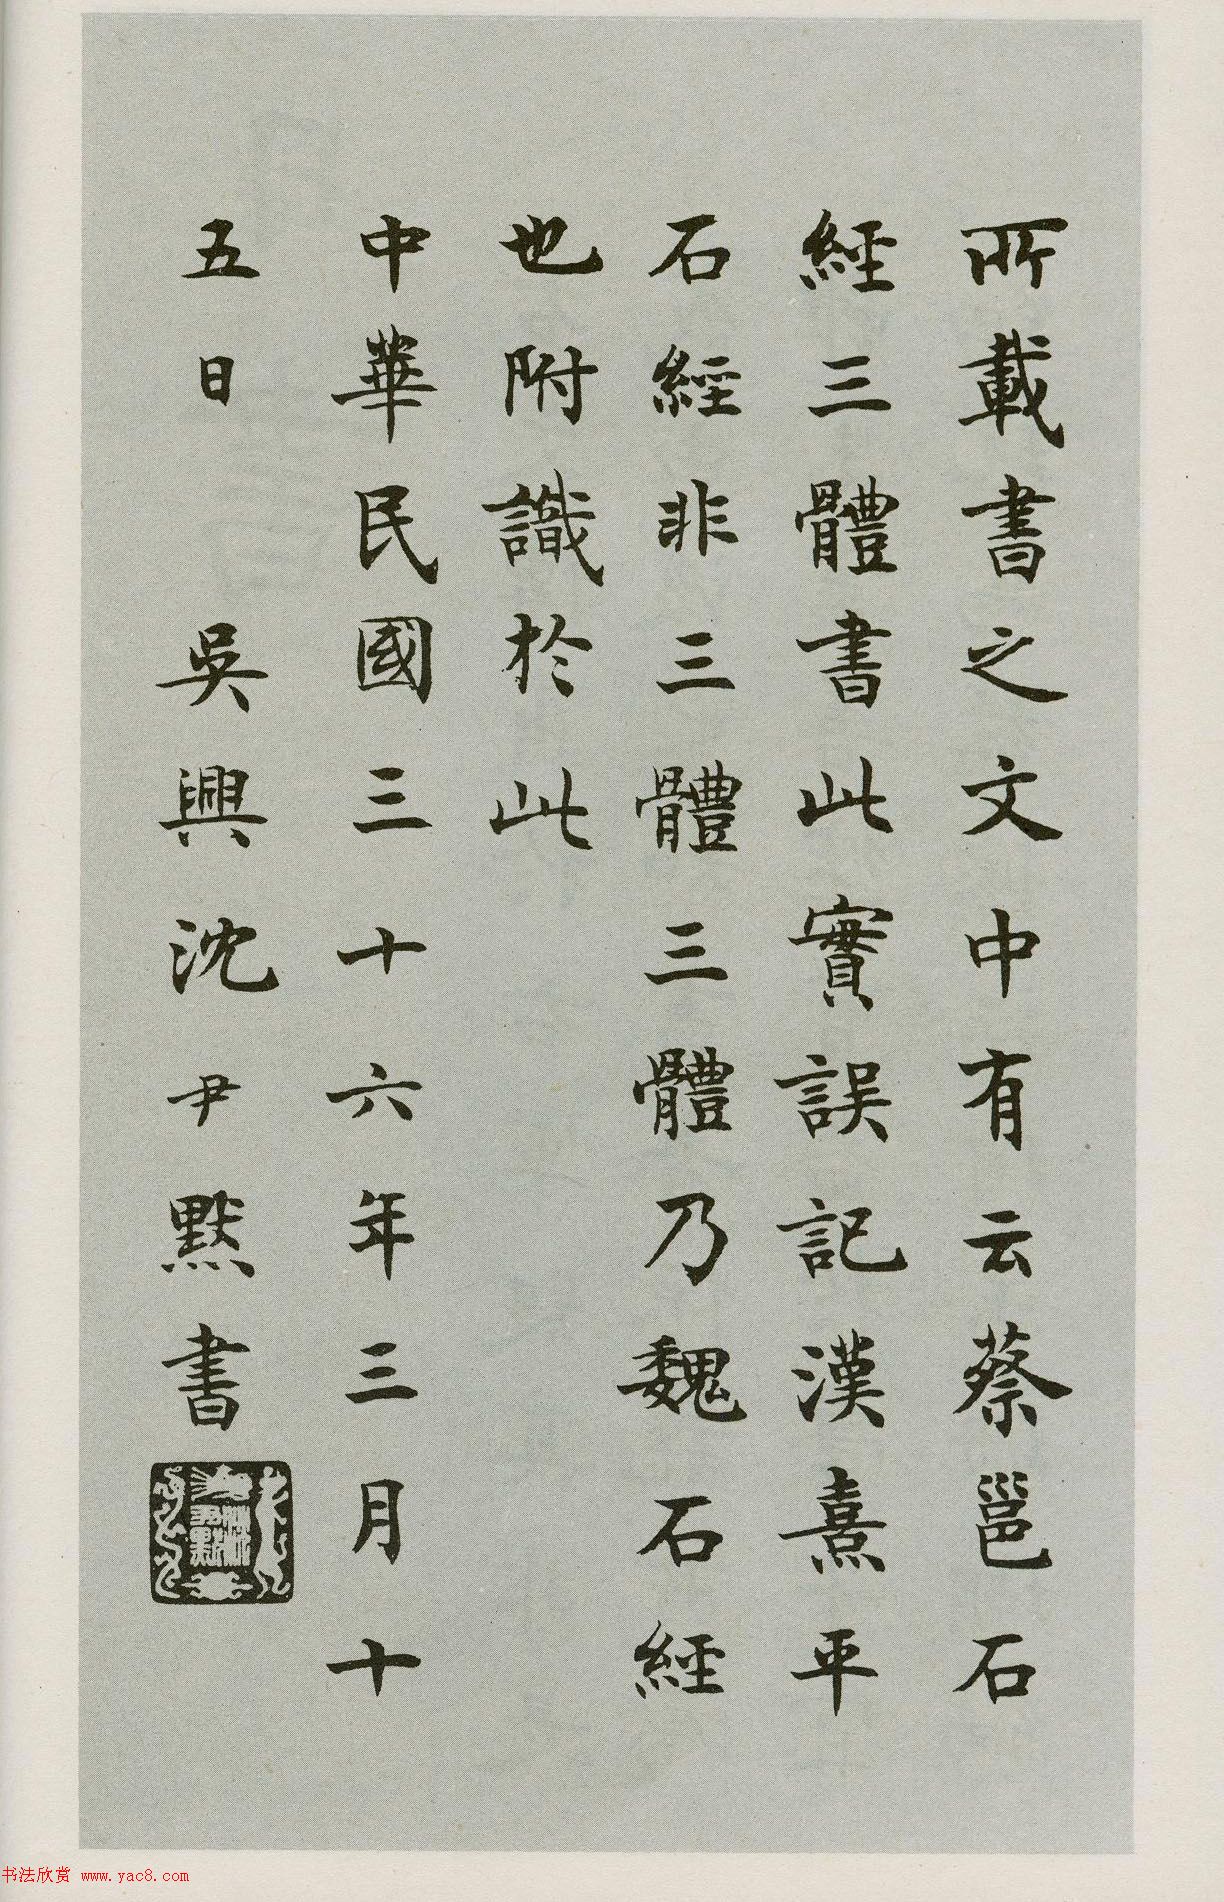 所載書之文中有云蔡邕石
經三體書此實誤記漢熹平
石經非三體三體乃魏石經
也附識於此
中華民國三十六年三月十
五日 吳興沈尹默書
書法欣赏 www.yac8.com